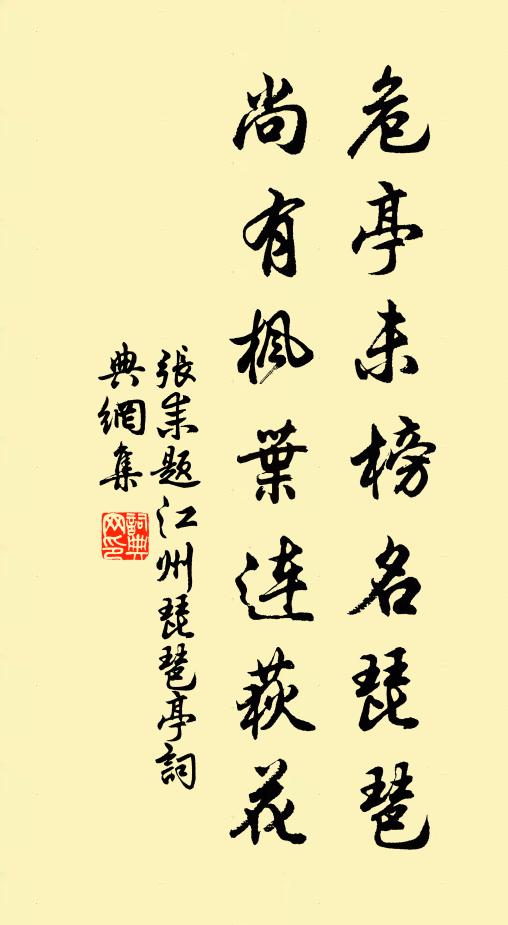 危亭未榜名琵琶
尚有楓葉連荻花
張耒題江州琵琶亭詞
典網集
詞典
网印